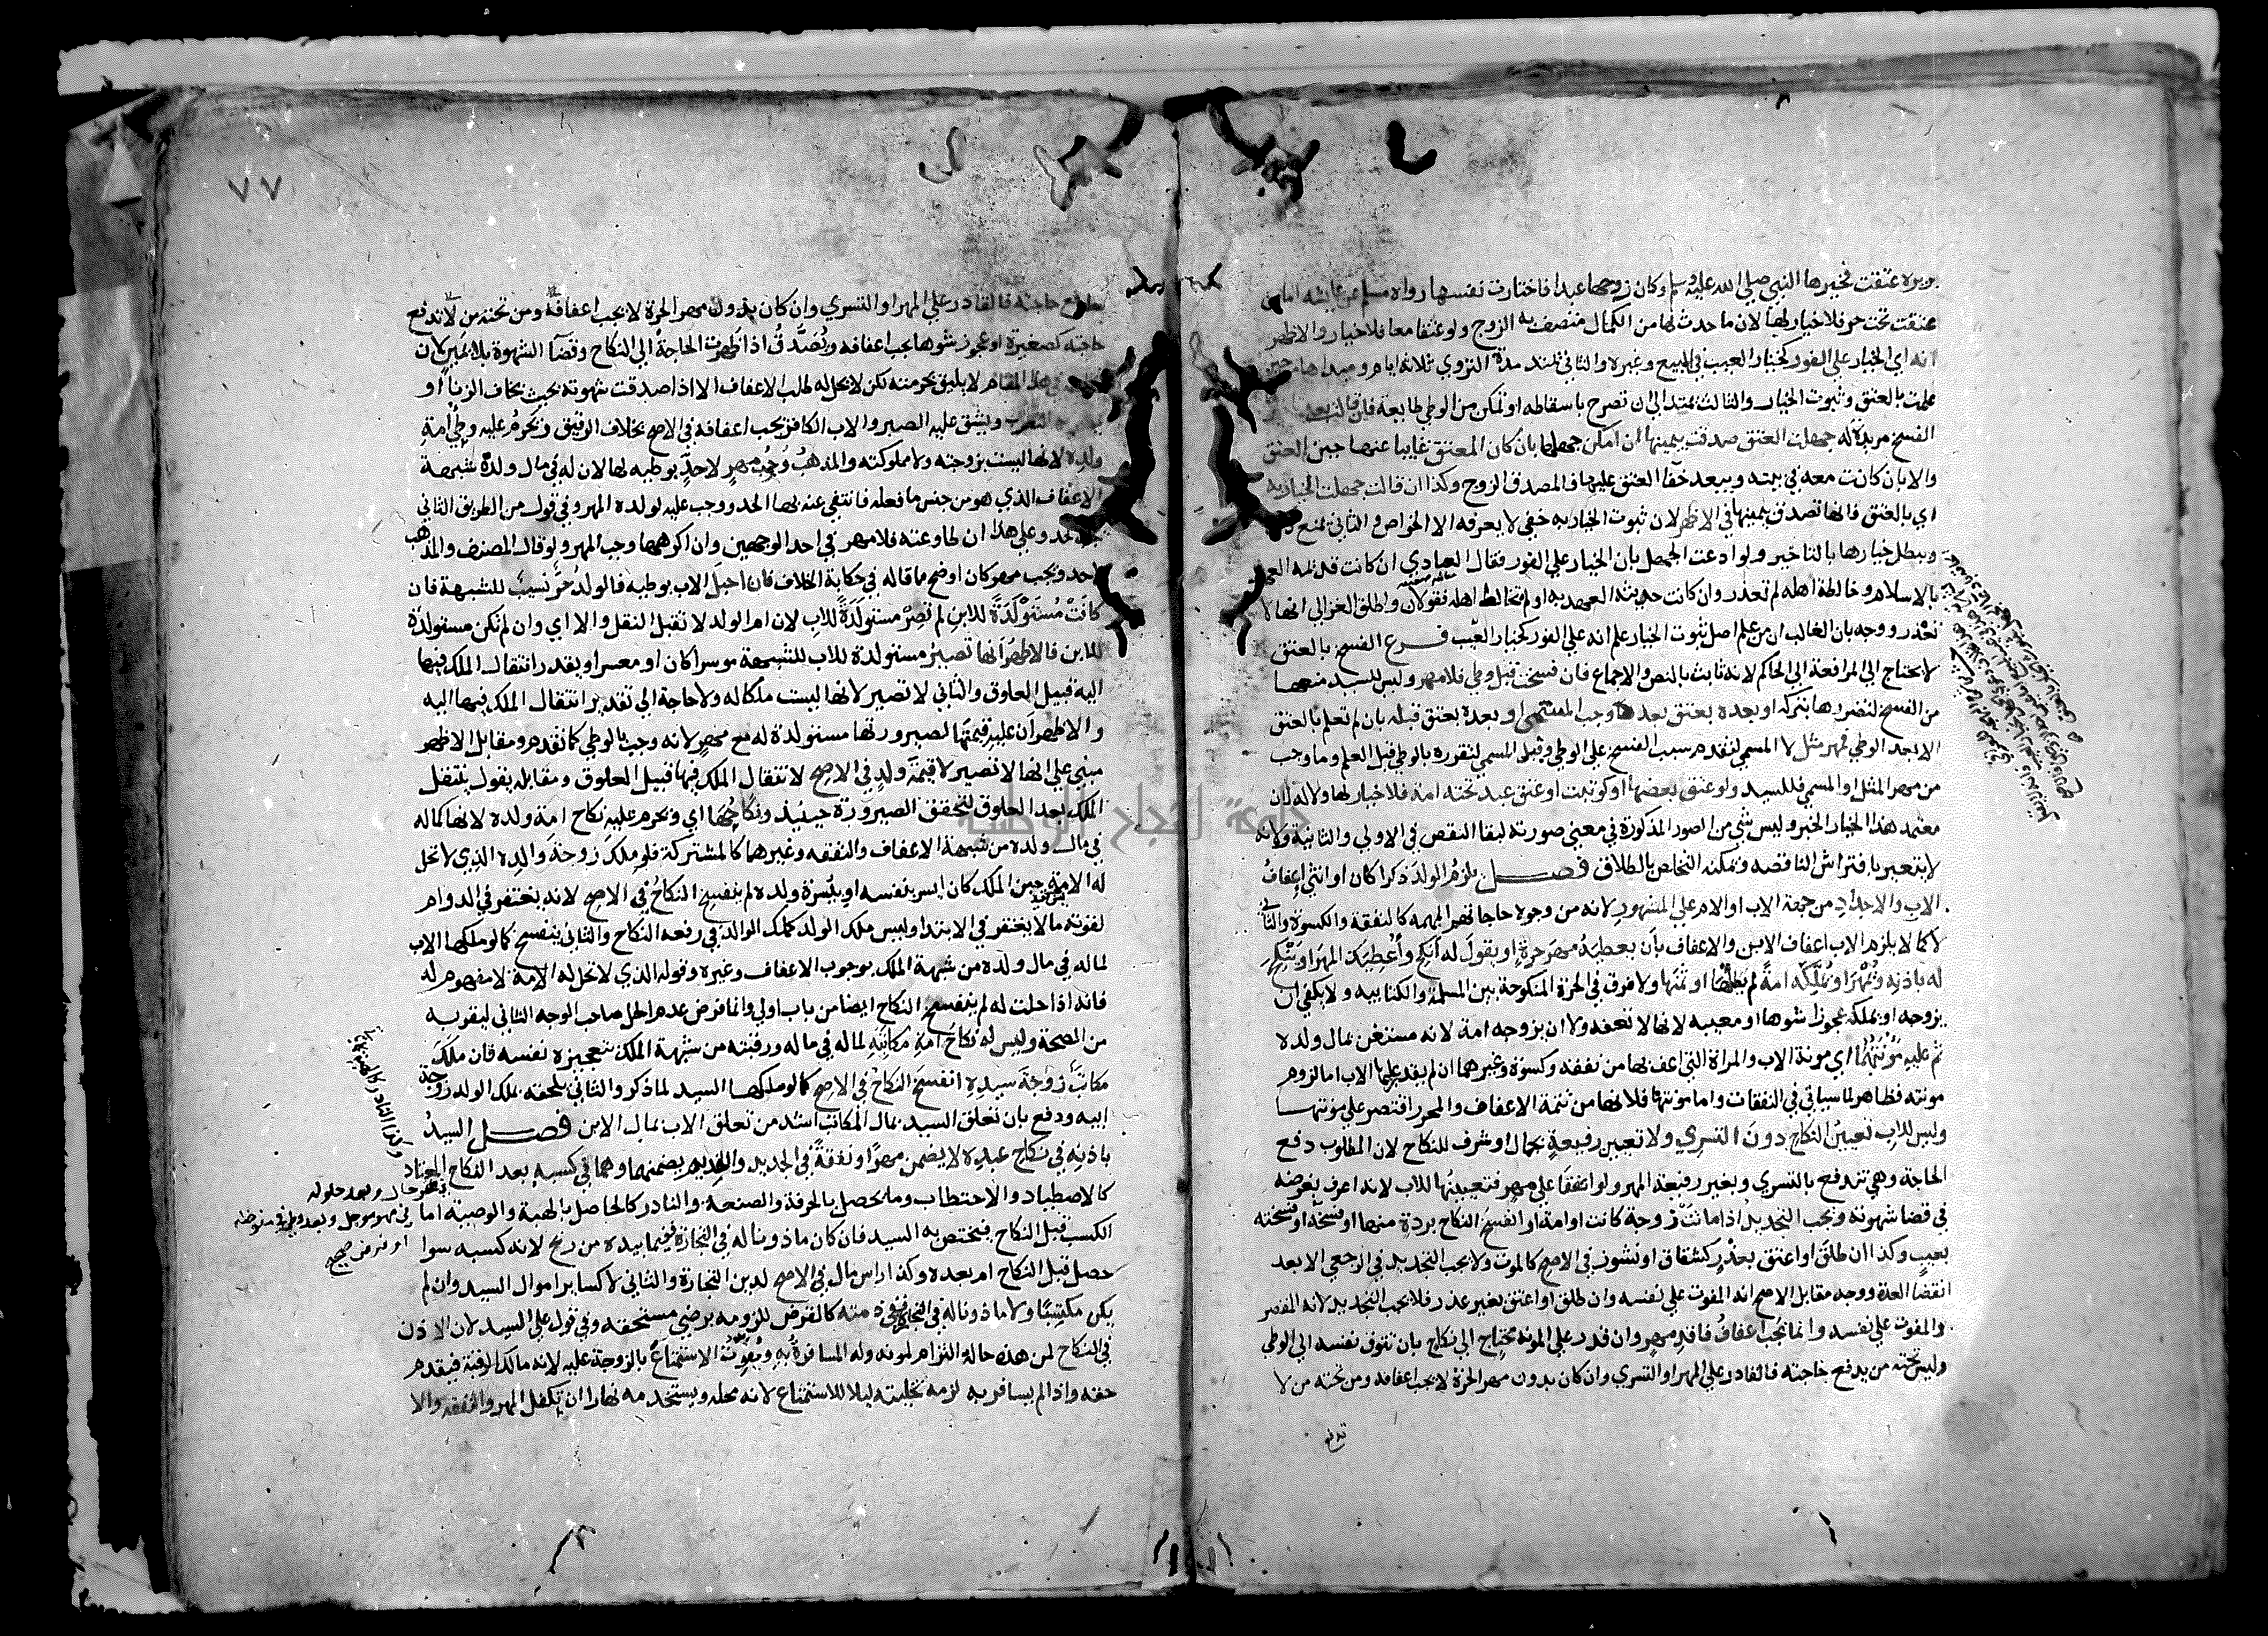 بريرة عتقت فخيرها النبي صلى الله عليه وسلم وكان زوجها عبدا فاختارت نفسها رواه مسلم عن عايشه اما من
عتقت تحت حر فلا خيار لها لان ما حدث لها من الكمال متصف به الزوج ولو عتقا معا فلا خيار والاظهر
انه اي الخيار علي الفور كخيار العيب في المبيع وغيره والثاني يمتد مدة التروي ثلاثة ايام ومبداها من حين
علمت بالعتق وثبوت الخيار والثالث يمتد الي ان تصرح باسقاطه او تمكن من الوطي طايعة فان قالت بعد
الفسخ مريدة له جهلت العتق صدقت بيمينها ان امكن جهلها بان كان المعتق غايبا عنها حين العتق
والا بان كانت معه في بيته ويبعد خفا العتق عليها فالمصدق الزوج وكذا ان قالت جهلت الخيار به
اي بالعتق فانها تصدق بيمينها في الاظهر لان ثبوت الخيار به خفي لا يعرفه الا الخواص والثاني تمنع
ويبطل خيارها بالتاخير ولو ادعت الجهل بان الخيار علي الفور فقال العبادي ان كانت قديمة العهد
بالاسلام وخالطة اهله لم تعذر وان كانت حديثة العهد به او لم تخالط اهله فقولان واطلق الغزالي انها لا
تعذر ووجه بان الغالب ان من علم اصل ثبوت الخيار علم انه علي الفور كخيار العيب فرع الفسخ بالعتق
لا يحتاج الي المرافعة الي الحاكم لانه ثابت بالنص والاجماع فان فسخت قبل وطي فلا مهر وليس للسيد منعها
من الفسخ لتضررها بتركه او بعده بعتق بعده وجب المسمي او بعده بعتق قبله بان لم تعلم بالعتق
الا بعد الوطي فمهر مثل لا المسمي لتقدم سبب الفسخ علي الوطي وقيل المسمي لتقرره بالوطي قبل العلم وما وجب
من مهر المثل او المسمي فللسيد ولو عتق بعضها او كوتبت او عتق عبد تحته امة فلا خيار لها ولا له لان
معتمد هذا الخيار الخبر وليس شي من الصور المذكورة في معني صورته لبقا النقص في الاولي والثانية ولانه
لا يتعير بافتراش الناقصه ويمكنه التخلص بالطلاق فصل يلزم الولد ذكرا كان او انثي اعفاف
الاب والاجداد من جهة الاب او الام علي المشهور لانه من وجوه حاجاتهم المهمه كالنفقة والكسوة والثاني
لا كما لا يلزم الاب اعفاف الابن والاعفاف بان يعطيه مهر حرة او يقول له انكح واعطيك المهر او ينكح
له باذنه ويمهر او يملكه امة لم يطاها او ثمنها ولا فرق في الحرة المنكوحة بين المسلمة والكتابيه ولا يكفي ان
يزوجه او يملكه عجوزا شوها او معيبه لانها لا تعفه ولا ان يزوجه امة لانه مستغن بمال ولده
ثم عليه مؤنتهما اي مونة الاب والمراة التي اعف بها من نفقه وكسوة وغيرهما ان لم يقدر عليها الاب اما لزوم
مونته فظاهر لما سياتي في النفقات واما مونتها فلانها من تتمة الاعفاف والمحرر اقتصر علي مونتها
وليس للاب تعيين النكاح دون التسري ولا تعيين رفيعة بجمال او شرف للنكاح لان المطلوب دفع
الحاجة وهي تندفع بالتسري وبغير رفيعة المهر ولو اتفقا علي مهر فتعيينها للاب لانه اعرف بغرضه
في قضا شهوته ويجب التجديد اذا ماتت زوجة كانت او امة او انفسخ النكاح بردة منها او فسخه او فسخته
بعيب وكذا ان طلق او اعتق بعذر كشقاق او نشوز في الاصح كالموت ولا يجب التجديد في الرجعي الا بعد
انقضا العدة ووجه مقابل الاصح انه المفوت علي نفسه وان طلق او اعتق بغير عذر فلا يجب التجديد لانه المقصر
والمفوت علي نفسه وانما يجب اعفاف فاقد مهر وان قدر علي المونه محتاج الي نكاح بان تتوق نفسه الي الوطي
وليس تحته من يدفع حاجته فالقادر علي المهر او التسري وان كان بدون مهر الحرة لا يجب اعفافه ومن تحته من لا
تدفع
٧٧
حاجته فالقادر علي المهر او التسري وان كان بدون مهر الحرة لا يجب اعفافه ومن تحته من لا تدفع
حاجته كصغيرة او عجوز شوها يجب اعفافه ويصدق اذا ظهرت الحاجة الي النكاح وقضا الشهوة بلا يمين لان
هذا المقام لا يليق بحرمته لكن لا يحل له طلب الاعفاف الا اذا صدقت شهوته بحيث يخاف الزنا او
التعزب ويشق عليه الصبر والاب الكافر يجب اعفافه في الاصح بخلاف الرقيق ويحرم عليه وطي امة
ولده لانها ليست بزوجته ولا مملوكته والمذهب وجوب مهر لا حد بوطيه لها لان له في مال ولده شبهة
الاعفاف الذي هو من جنس ما فعله فانتفي عنه بها الحد ووجب عليه لولده المهر وفي قول من الطريق الثاني
يجب الحد وعلي هذا ان طاوعته فلا مهر في احد الوجهين وان اكرهها وجب المهر ولو قال المصنف والمذهب
لا حد ويجب مهر كان اوضح ما قاله في حكاية الخلاف فان احبل الاب بوطيه فالولد حر نسيب للشبهة فان
كانت مستولدة للابن لم تصر مستولدة للاب لان ام الولد لا تقبل النقل والا اي وان لم تكن مستولدة
للابن فالاظهر انها تصير مستولدة للاب للشبهة موسرا كان او معسرا ويقدر انتقال الملك فيها
اليه قبيل العلوق والثاني لا تصير لانها ليست ملكا له ولا حاجة الي تقدير انتقال الملك فيها اليه
والاظهر ان عليه قيمتها لصيرورتها مستولدة له مع مهر لانه وجب بالوطي كما تقدم ومقابل الاظهر
مبني علي انها لا تصير لا قيمة ولد في الاصح لانتقال الملك فيها قبيل العلوق ومقابله يقول ينتقل
الملك بعد العلوق لتحقق الصيرورة حينيذ ونكاحها اي ويحرم عليه نكاح امة ولده لانها كماله
في مال ولده من شبهة الاعفاف والنفقه وغيرهما كالمشتركة فلو ملك زوجة والده الذي لا تحل
له الامة حين الملك كان ايسر بنفسه او بيسرة ولده لم ينفسخ النكاح في الاصح لانه يغتفر في الدوام
لقوته ما لا يغتفر في الابتدا وليس ملك الولد كملك الوالد في رفعه النكاح والثاني ينفسخ كما لو ملكها الاب
لما له في مال ولده من شبهة الملك بوجوب الاعفاف وغيره وقوله الذي لا تحل له الامة لا مفهوم له
فانه اذا حلت له لم ينفسخ النكاح ايضا من باب اولي وانما فرض عدم الحل صاحب الوجه الثاني ليقربه
من الصحة وليس له نكاح امة مكاتبه لما له في ماله ورقبته من شبهة الملك بتعجيزه نفسه فان ملك
مكاتب زوجة سيده انفسخ النكاح في الاصح كما لو ملكها السيد لما ذكر والثاني يلحقه بملك الولد زوجة
ابيه ودفع بان تعلق السيد بمال المكاتب اشد من تعلق الاب بمال الابن فصل السيد
باذنه في نكاح عبده لا يضمن مهرا ونفقة في الجديد والقديم يضمنهما وهما في كسبه بعد النكاح المعتاد
كالاصطياد والاحتطاب وما يحصل بالحرفة والصنعة والنادر كالحاصل بالهبة والوصية اما
الكسب قبل النكاح فيختص به السيد فان كان ماذونا له في التجارة ففيما بيده من ربح لانه كسبه سوا
حصل قبل النكاح ام بعده وكذا راس مال في الاصح لدين التجارة والثاني لا كساير اموال السيد وان لم
يكن مكتسبا ولا ماذونا له في التجارة ففي ذمته كالقرض للزومه برضي مستحقه وفي قول علي السيد لان الاذن
في النكاح لمن هذه حاله التزام لمونه وله المسافرة به ويفوت الاستمتاع بالزوجة عليه لانه مالك الرقبة فيقدم
حقه واذا لم يسافر به لزمه تخليته ليلا للاستمتاع لانه محله ويستخدمه نهارا ان تكفل المهر والنفقه والا
في مهر حال وبعد حلوله
في مهر موجل وبعد
او فرض صحيح
جامعة النجاح الوطنية